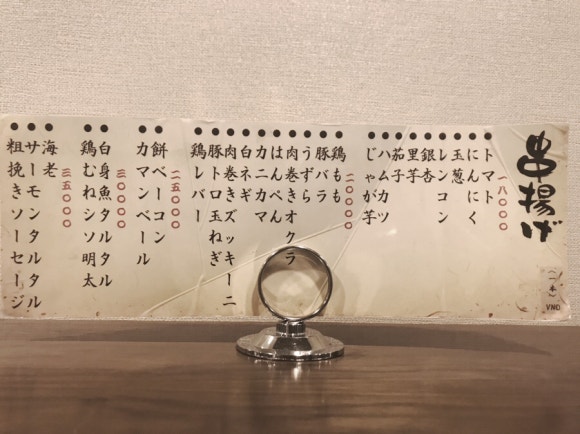 串揚げ
(一本)
VND
一八〇〇〇
トマト
にんにく
玉葱
レンコン
銀杏
里芋
茄子
ハムカツ
じゃが芋
二〇〇〇〇
鶏もも
豚バラ
うずら
肉巻きオクラ
はんぺん
カニカマ
白ネギ
肉巻きズッキーニ
豚トロ玉ねぎ
鶏レバー
二五〇〇〇
餅ベーコン
カマンベール
三〇〇〇〇
白身魚タルタル
鶏むねシソ明太
三五〇〇〇
海老
サーモンタルタル
粗挽きソーセージ